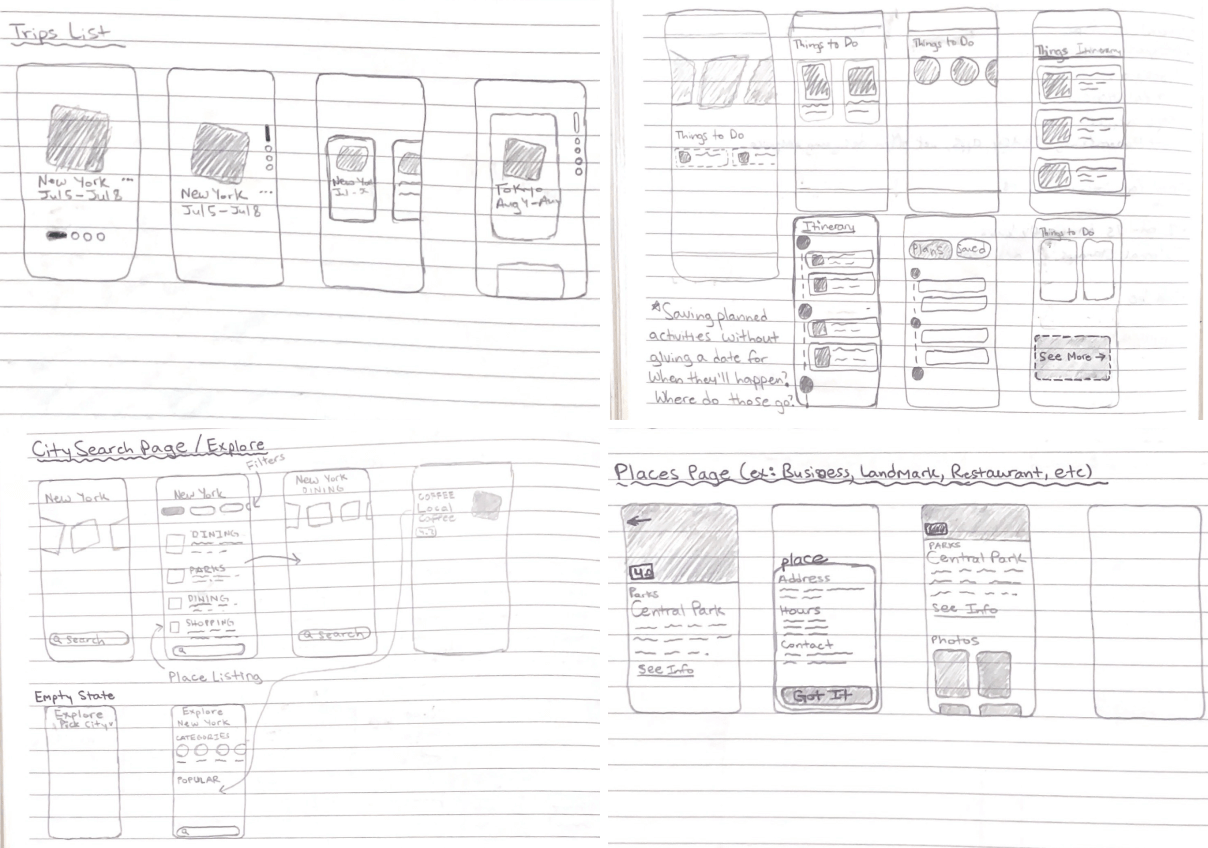 Trips List
New York ...
Jul 5 - Jul 8
New York ...
Jul 5 - Jul 8
Tokyo
Things to Do
Things to Do
Things to Do
Things Itinerary
Itinerary
Plans Saved
Things to Do
See More →
*Saving planned
activities without
giving a date for
when they'll happen?
Where do those go?
City Search Page / Explore
Filters
New York
Search
New York
DINING
PARKS
DINING
SHOPPING
Place Listing
New York
DINING
Search
COFFEE
Local
Coffee
Empty State
Explore
Pick City
Explore
New York
CATEGORIES
POPULAR
Places Page (ex: Business, Landmark, Restaurant, etc)
Parks
Central Park
See Info
place
Address
Hours
Contact
Got It
PARKS
Central Park
See Info
Photos